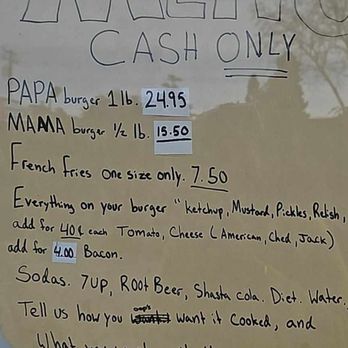 MENU
CASH ONLY
PAPA burger 1 lb. 24.95
MAMA burger 1/2 lb. 15.50
French Fries one size only. 7.50
Everything on your burger "ketchup, Mustard, Pickles, Relish,
add for 40¢ each Tomato, Cheese (American, Ched, Jack)
add for 4.00 Bacon.
Sodas. 7up, Root Beer, Shasta cola. Diet. Water.
Tell us how you oops want it cooked, and
What